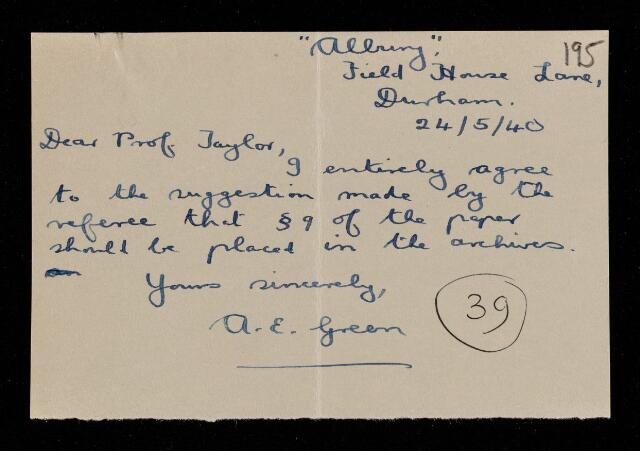 "Allring",
195
Field House Lane,
Durham.
24/5/40
Dear Prof. Taylor,
I entirely agree
to the suggestion made by the
referee that § 9 of the paper
should be placed in the archives.
Yours sincerely,
A. E. Green
39